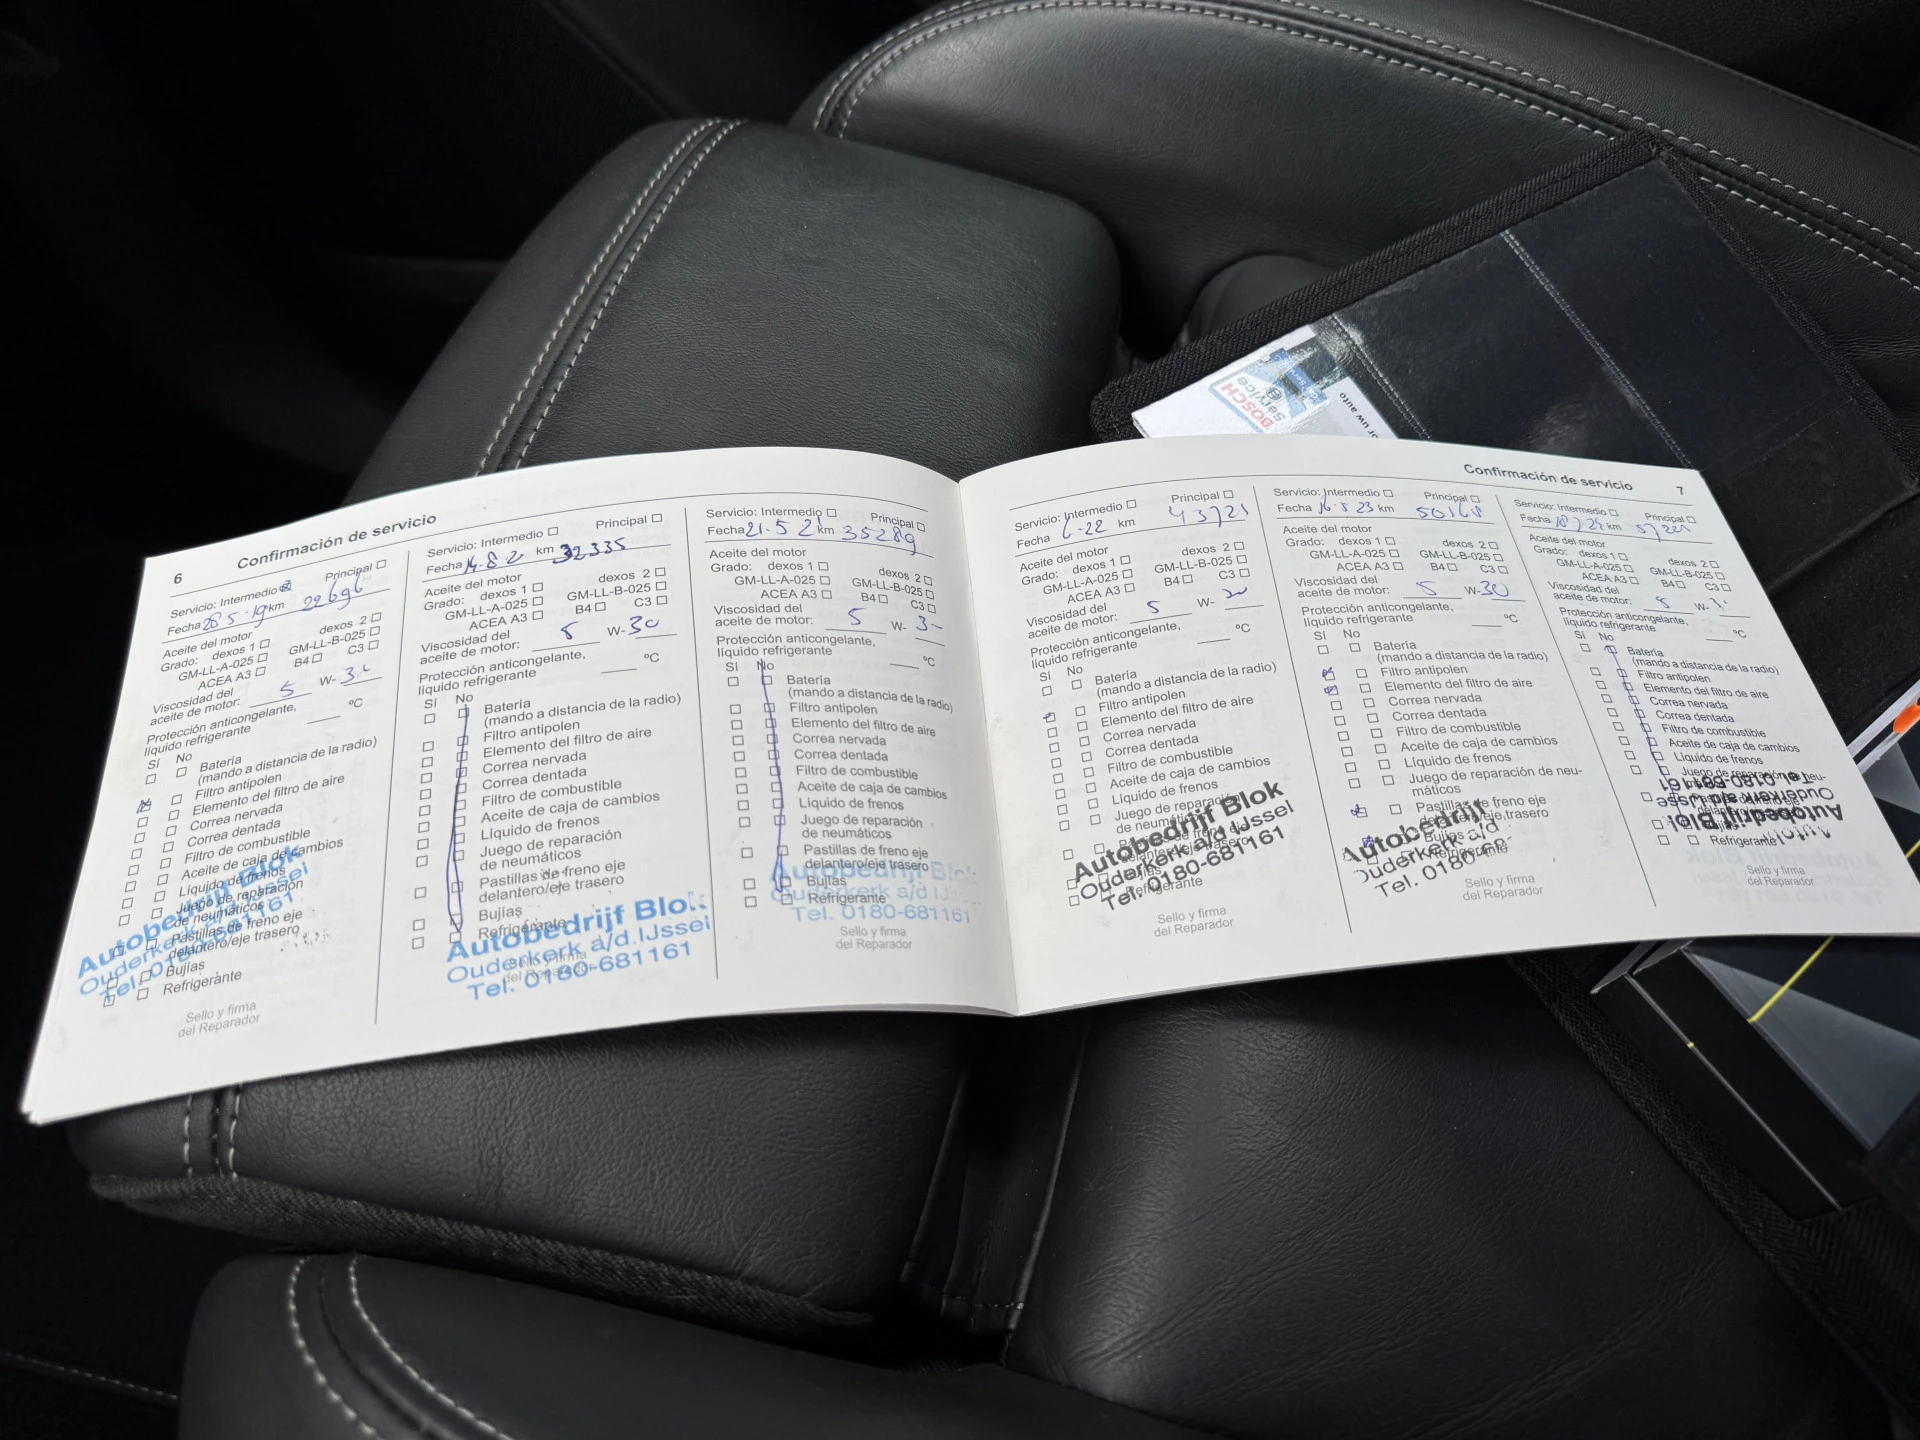 6
Confirmación de servicio
Servicio: Intermedio Principal
Fecha 28-5-19 km 22696
Aceite del motor
Grado: dexos 1 dexos 2
GM-LL-A-025 GM-LL-B-025
ACEA A3 B4 C3
Viscosidad del
aceite de motor: 5 W-30
Protección anticongelante,
líquido refrigerante °C
Sí No
Batería
(mando a distancia de la radio)
Filtro antipolen
Elemento del filtro de aire
Correa nervada
Correa dentada
Filtro de combustible
Aceite de caja de cambios
Líquido de frenos
Juego de reparación
de neumáticos
Pastillas de freno eje
delantero/eje trasero
Bujías
Refrigerante
Autobedrijf Blok
Ouderkerk a/d IJssel
Tel. 0180-681161
Sello y firma
del Reparador
Servicio: Intermedio Principal
Fecha 14-8-2 km 32335
Aceite del motor
Grado: dexos 1 dexos 2
GM-LL-A-025 GM-LL-B-025
ACEA A3 B4 C3
Viscosidad del
aceite de motor: 5 W-30
Protección anticongelante,
líquido refrigerante °C
Sí No
Batería
(mando a distancia de la radio)
Filtro antipolen
Elemento del filtro de aire
Correa nervada
Correa dentada
Filtro de combustible
Aceite de caja de cambios
Líquido de frenos
Juego de reparación
de neumáticos
Pastillas de freno eje
delantero/eje trasero
Bujías
Refrigerante
Autobedrijf Blok
Ouderkerk a/d IJssel
Tel. 0180-681161
Sello y firma
del Reparador
Servicio: Intermedio Principal
Fecha 21-5 21 km 35289
Aceite del motor
Grado: dexos 1 dexos 2
GM-LL-A-025 GM-LL-B-025
ACEA A3 B4 C3
Viscosidad del
aceite de motor: 5 W- 3-
Protección anticongelante,
líquido refrigerante °C
Sí No
Batería
(mando a distancia de la radio)
Filtro antipolen
Elemento del filtro de aire
Correa nervada
Correa dentada
Filtro de combustible
Aceite de caja de cambios
Líquido de frenos
Juego de reparación
de neumáticos
Pastillas de freno eje
delantero/eje trasero
Bujías
Refrigerante
Autobedrijf Blok
Ouderkerk a/d IJssel
Tel. 0180-681161
Sello y firma
del Reparador
Confirmación de servicio
7
Servicio: Intermedio Principal
Fecha 6-22 km 43721
Aceite del motor
Grado: dexos 1 dexos 2
GM-LL-A-025 GM-LL-B-025
ACEA A3 B4 C3
Viscosidad del
aceite de motor: 5 W-
Protección anticongelante,
líquido refrigerante °C
Sí No
Batería
(mando a distancia de la radio)
Filtro antipolen
Elemento del filtro de aire
Correa nervada
Correa dentada
Filtro de combustible
Aceite de caja de cambios
Líquido de frenos
Juego de reparación
de neumáticos
Pastillas de freno eje
delantero/eje trasero
Bujías
Refrigerante
Autobedrijf Blok
Ouderkerk a/d IJssel
Tel. 0180-681161
Sello y firma
del Reparador
Servicio: Intermedio Principal
Fecha 16 5 23 km 50168
Aceite del motor
Grado: dexos 1 dexos 2
GM-LL-A-025 GM-LL-B-025
ACEA A3 B4 C3
Viscosidad del
aceite de motor: 5 W-30
Protección anticongelante,
líquido refrigerante °C
Sí No
Batería
(mando a distancia de la radio)
Filtro antipolen
Elemento del filtro de aire
Correa nervada
Correa dentada
Filtro de combustible
Aceite de caja de cambios
Líquido de frenos
Juego de reparación de neu-
máticos
Pastillas de freno eje
delantero/eje trasero
Bujías
Refrigerante
Autobedrijf
Ouderkerk a/d
Tel. 0180-68
Sello y firma
del Reparador
Servicio: Intermedio Principal
Fecha km
Aceite del motor
Grado: dexos 1 dexos 2
GM-LL-A-025 GM-LL-B-025
ACEA A3 B4 C3
Viscosidad del
aceite de motor: 5 W-
Protección anticongelante,
líquido refrigerante °C
Sí No
Batería
(mando a distancia de la radio)
Filtro antipolen
Elemento del filtro de aire
Correa nervada
Correa dentada
Filtro de combustible
Aceite de caja de cambios
Líquido de frenos
Juego de reparación de neu-
Pastillas de freno eje
Refrigerante
Autobedrijf Blok
Ouderkerk a/d IJssel
Tel. 0180-681161
Sello y firma
del Reparador
BOSCH
Service
or uw auto